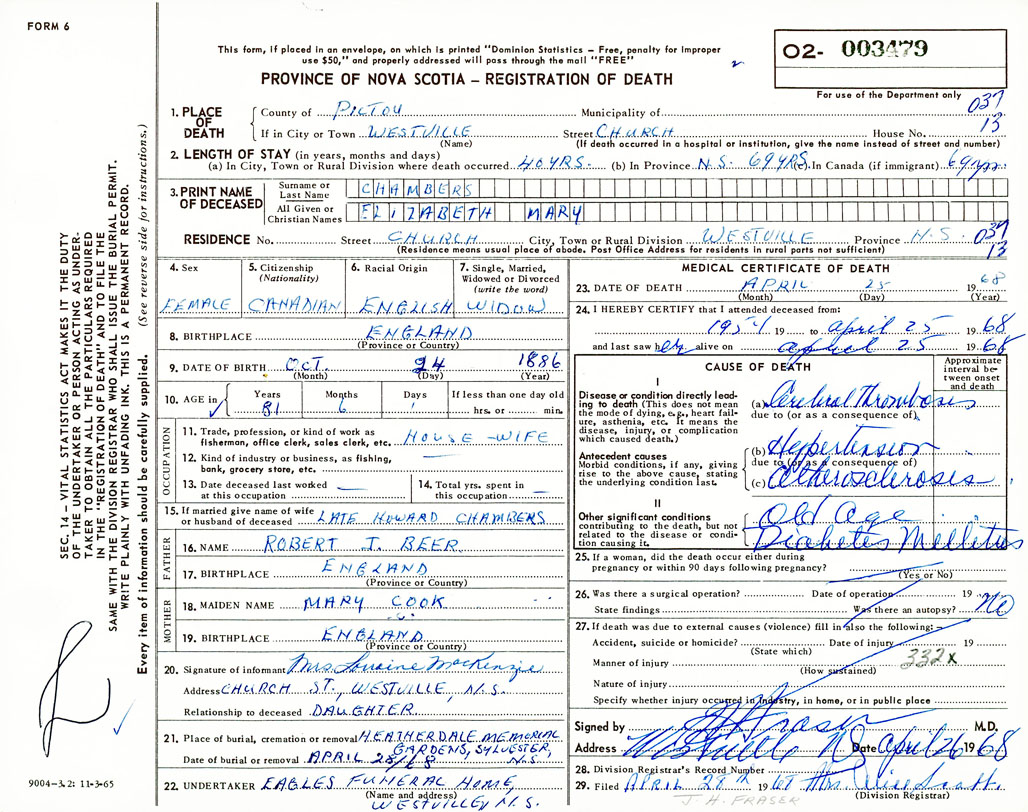 FORM 6
This form, if placed in an envelope, on which is printed "Dominion Statistics – Free, penalty for improper
use $50," and properly addressed will pass through the mail "FREE"
PROVINCE OF NOVA SCOTIA – REGISTRATION OF DEATH
02- 003479
For use of the Department only
037
13
1. PLACE OF DEATH
County of PICTOU Municipality of
If in City or Town WESTVILLE Street CHURCH House No.
(Name) (If death occurred in a hospital or institution, give the name instead of street and number)
2. LENGTH OF STAY (in years, months and days)
(a) In City, Town or Rural Division where death occurred 40 YRS. (b) In Province N.S. 69 YRS. (c) In Canada (if immigrant) 69 yrs.
3. PRINT NAME OF DECEASED
Surname or Last Name CHAMBERS
All Given or Christian Names ELIZABETH MARY
RESIDENCE No. Street CHURCH City, Town or Rural Division WESTVILLE Province N.S. 037
13
(Residence means usual place of abode. Post Office Address for residents in rural parts not sufficient)
4. Sex
FEMALE
5. Citizenship
(Nationality)
CANADIAN
6. Racial Origin
ENGLISH
7. Single, Married,
Widowed or Divorced
(write the word)
WIDOW
8. BIRTHPLACE ENGLAND
(Province or Country)
9. DATE OF BIRTH OCT. 24 1886
(Month) (Day) (Year)
10. AGE in
Years Months Days If less than one day old
81 6 1 hrs. or min.
OCCUPATION
11. Trade, profession, or kind of work as
fisherman, office clerk, sales clerk, etc. HOUSE-WIFE
12. Kind of industry or business, as fishing,
bank, grocery store, etc. —
13. Date deceased last worked
at this occupation —
14. Total yrs. spent in
this occupation —
15. If married give name of wife
or husband of deceased LATE HOWARD CHAMBERS
FATHER
16. NAME ROBERT J. BEER
17. BIRTHPLACE ENGLAND
(Province or Country)
MOTHER
18. MAIDEN NAME MARY COOK
19. BIRTHPLACE ENGLAND
(Province or Country)
20. Signature of informant Mrs. Lorraine MacKenzie
Address CHURCH ST., WESTVILLE, N.S.
Relationship to deceased DAUGHTER
21. Place of burial, cremation or removal HEATHERDALE MEMORIAL
GARDENS, SYLVESTER, N.S.
Date of burial or removal APRIL 28/68
22. UNDERTAKER EAGLES FUNERAL HOME,
(Name and address)
WESTVILLE, N.S.
MEDICAL CERTIFICATE OF DEATH
23. DATE OF DEATH APRIL 25 1968
(Month) (Day) (Year)
24. I HEREBY CERTIFY that I attended deceased from:
1954 19 to april 25 1968
and last saw her alive on april 25 1968
CAUSE OF DEATH
Approximate
interval be-
tween onset
and death
I
Disease or condition directly lead-
ing to death (This does not mean
the mode of dying, e.g., heart fail-
ure, asthenia, etc. It means the
disease, injury, or complication
which caused death.)
(a) Cerebral Thrombosis
due to (or as a consequence of)
Antecedent causes
Morbid conditions, if any, giving
rise to the above cause, stating
the underlying condition last.
(b) Hypertension
due to (or as a consequence of)
(c) Atherosclerosis
II
Other significant conditions
contributing to the death, but not
related to the disease or condi-
tion causing it.
Old Age
Diabetes Mellitus
25. If a woman, did the death occur either during
pregnancy or within 90 days following pregnancy?
(Yes or No)
26. Was there a surgical operation? Date of operation 19
State findings Was there an autopsy? No
27. If death was due to external causes (violence) fill in also the following:
Accident, suicide or homicide? Date of injury 19
(State which)
Manner of injury 332 x
(How sustained)
Nature of injury
Specify whether injury occurred in industry, in home, or in public place
Signed by J H Fraser M.D.
Address Westville NS Date April 26 1968
28. Division Registrar's Record Number
29. Filed APRIL 28th 1968 Mrs.
(Division Registrar)
J. H. FRASER
SEC. 14 – VITAL STATISTICS ACT MAKES IT THE DUTY
OF THE UNDERTAKER OR PERSON ACTING AS UNDER-
TAKER TO OBTAIN ALL THE PARTICULARS REQUIRED
IN THE "REGISTRATION OF DEATH" AND TO FILE THE
SAME WITH THE DIVISION REGISTRAR WHO SHALL ISSUE THE BURIAL PERMIT.
WRITE PLAINLY WITH UNFADING INK. THIS IS A PERMANENT RECORD.
Every item of information should be carefully supplied. (See reverse side for instructions.)
9004-3.2: 11-3-65